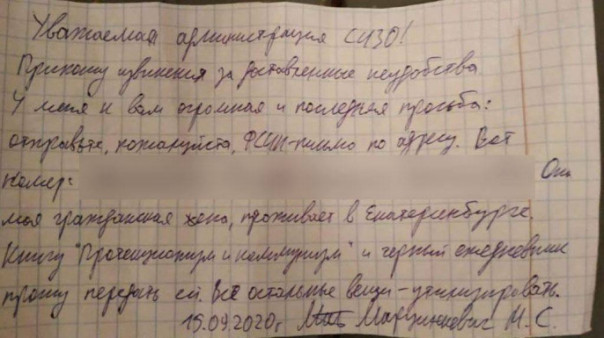 Уважаемая администрация СИЗО!
Приношу извинения за доставленные неудобства
У меня к вам огромная и последняя просьба:
отправьте, пожалуйста, ФСИН-письмо по адресу. Вот
номер: Она
моя гражданская жена, проживает в Екатеринбурге.
Книгу "Протекционизм и коммунизм" и черный ежедневник
прошу передать ей. Все остальные вещи - утилизировать.
15.09.2020г Марцинкевич М.С.